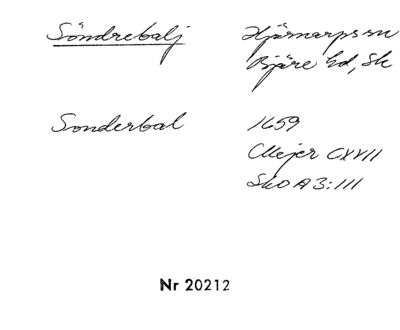 Söndrebalj
Hjärnarps sn
Bjäre hd, Sk
Sonderbal
1659
Mejer CXVII
SkO A3:111
Nr 20212